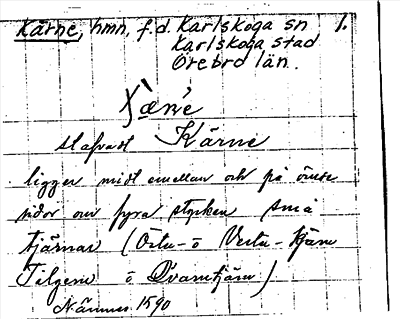 Kärne, hmn, f.d. Karlskoga sn 1.
Karlskoga stad
Örebro län.
stafvadt Kärne
ligger midt emellan och på ömse
sidor om fyra stycken små
tjärnar (Östra- o Vestra-tjärn
o Qvarntjärn)
Nämnes 1590